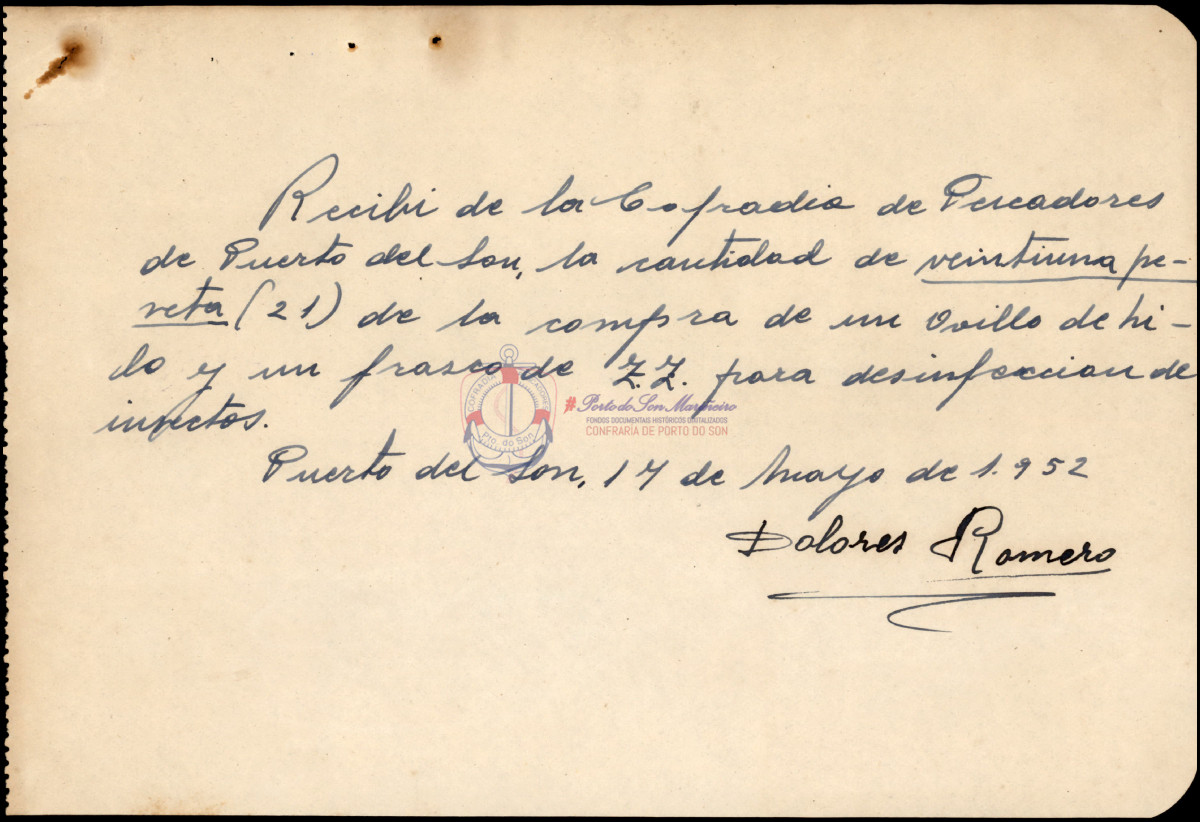 Recibi de la Cofradia de Pescadores
de Puerto del Son, la cantidad de veintiuna pe-
seta (21) de la compra de un Ovillo de hi-
lo y un frasco de Z.Z. para desinfeccion de
insectos.
COFRADIA PESCADORES
Pto. do Son
#PortodoSonMariñeiro
FONDOS DOCUMENTAIS HISTÓRICOS DIXITALIZADOS
CONFRARÍA DE PORTO DO SON
Puerto del Son, 17 de Mayo de 1.952
Dolores Romero